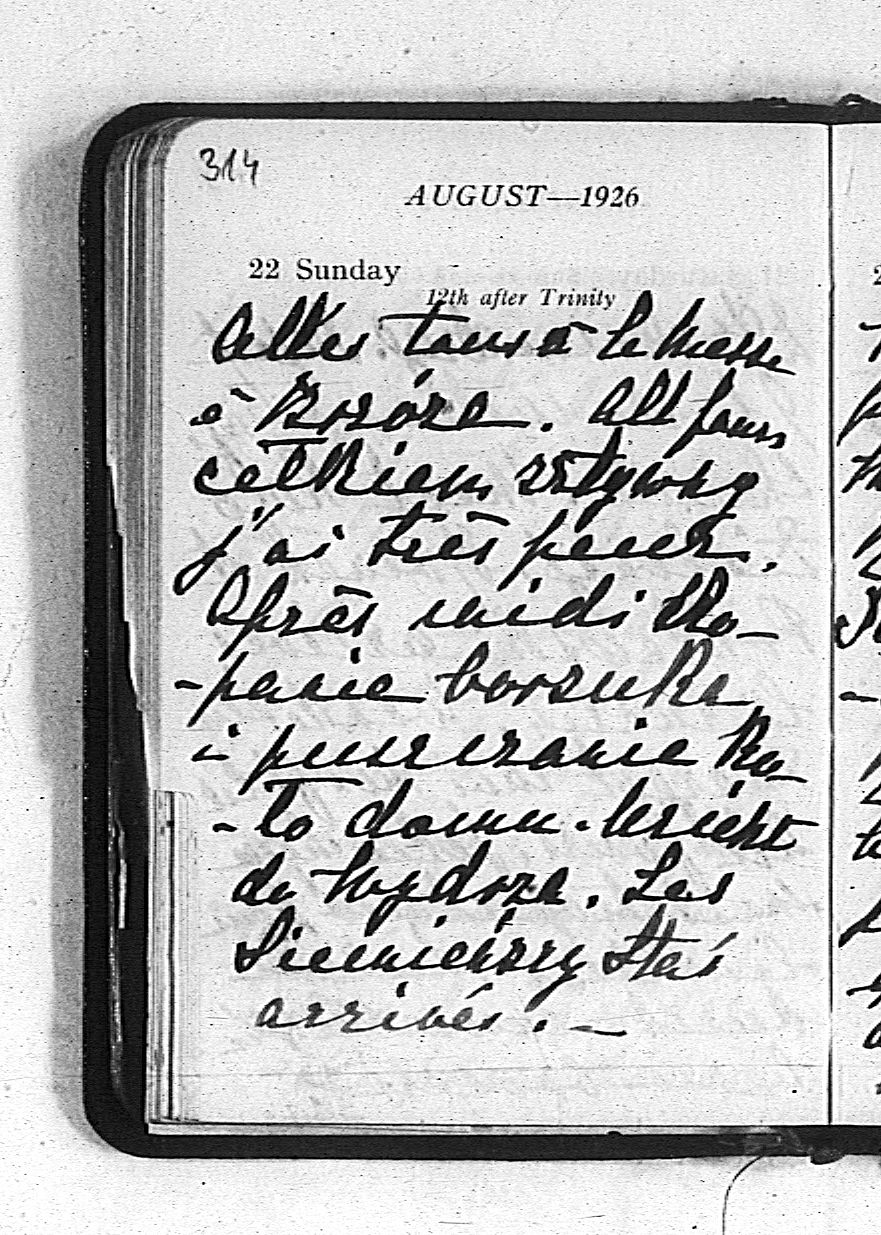 314
AUGUST—1926
22 Sunday
12th after Trinity
Allés tous à la messe
à Kozóza. Alf jours
całkiem
j'ai très peur.
Après midi Ko-
-panie borsuka
i puszczanie ko-
-to domu.
do Wydrza. Les
Siemieńscy Staś
arrivés. —